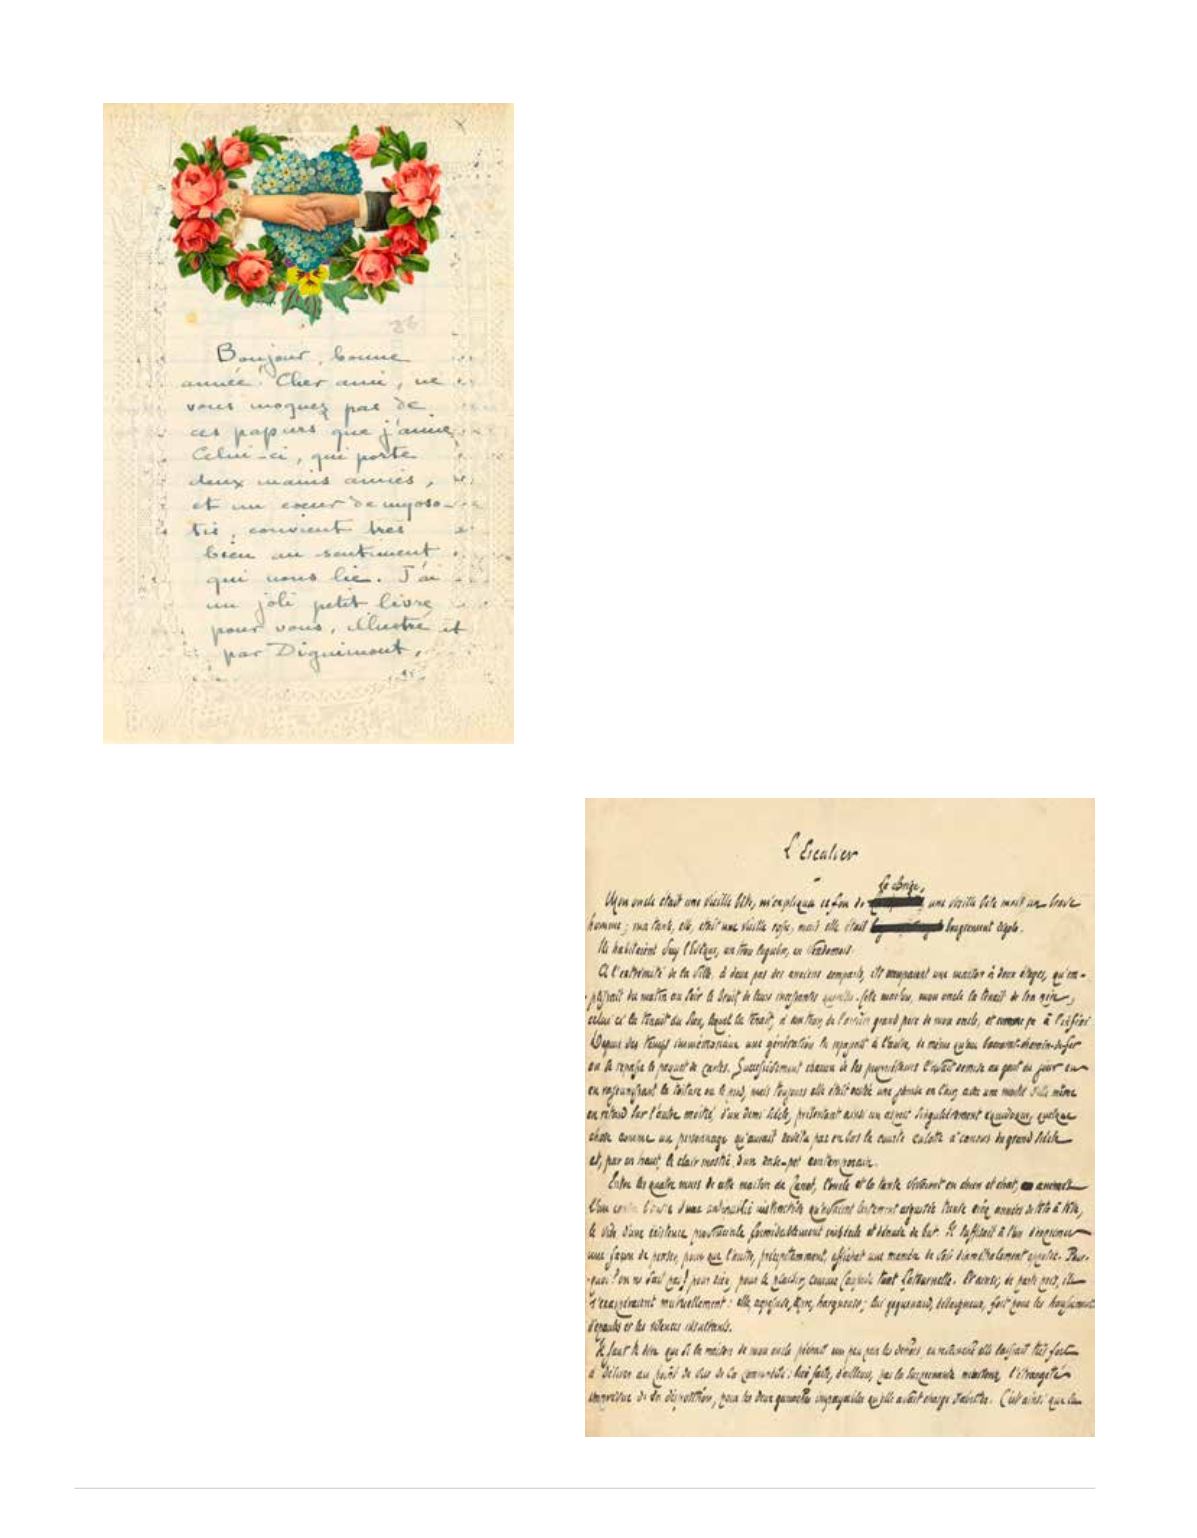 Bonjour, bonne
année. Cher ami, ne
vous moquez pas de
ces papiers que j'aime.
Celui-ci, qui porte
deux mains amies,
et un cœur de myoso-
tis, convient très
bien au sentiment
qui nous lie. J'ai
un joli petit livre
pour vous, illustré et
par Dignimont,
L'Escalier
Le Brize,
Mon oncle était une vieille bête, m'expliqua ce fou de une vieille bête mais un brave
homme ; ma tante, elle, était une vieille rosse, mais elle était bougrement rigolo.
Ils habitaient
A l'extrémité de la ville, à deux pas des anciens remparts, ils occupaient une maison à deux étages, qu'em-
plissait du matin au soir le bruit de leurs incessantes querelles. Cette maison, mon oncle la tenait de son père,
celui-ci la tenait du sien, lequel la tenait, à son tour, de l'arrière grand père de mon oncle, et comme ça à l'infini.
Depuis des temps immémoriaux une génération la repassait à l'autre, de même qu'au baccarat chemin-de-fer
on se repasse le paquet de cartes. Successivement chacun de ses propriétaires l'avait remise au goût du jour en
en rajeunissant la toiture ou le pied, mais toujours elle était restée une jambe en l'air, avec une moitié d'elle même
en retard sur l'autre moitié, d'un demi siècle, présentant ainsi un aspect singulièrement équivoque, quelque
chose comme un personnage qu'aurait revêtu par en bas la courte culotte à canons du grand siècle
et, par en haut, le clair mastic d'un cache-pot contemporain.
Entre les quatre murs de cette maison de l'oncle et la tante vivaient en chien et chat, animés
l'un contre l'autre d'une antipathie instinctive qu'avaient lentement aiguisée trente cinq années de tête à tête,
le vide d'une existence provinciale formidablement imbécile et dénuée de but. Il suffisait à l'un d'exprimer
une façon de penser, pour que l'autre, précipitamment, affichât une manière de voir diamétralement opposée. Pour-
quoi ? on ne sait pas ! pour rien, pour le plaisir, comme tant Laturnelle. Et ainsi, de part et d'autre, ils
s'exaspéraient mutuellement : elle, agressive, âpre, hargneuse ; lui goguenard, fort pour les haussements
d'épaules et les silences insultants.
Il faut te dire que si la maison de mon oncle péchait un peu par les dehors, en revanche elle laissait très fort
à désirer au point de vue de la commodité : bien faite, d'ailleurs, par la surprenante l'étrangeté
imprévue de sa disposition, pour les deux ganaches impayables qu'elle avait charge d'abriter. C'est ainsi que la